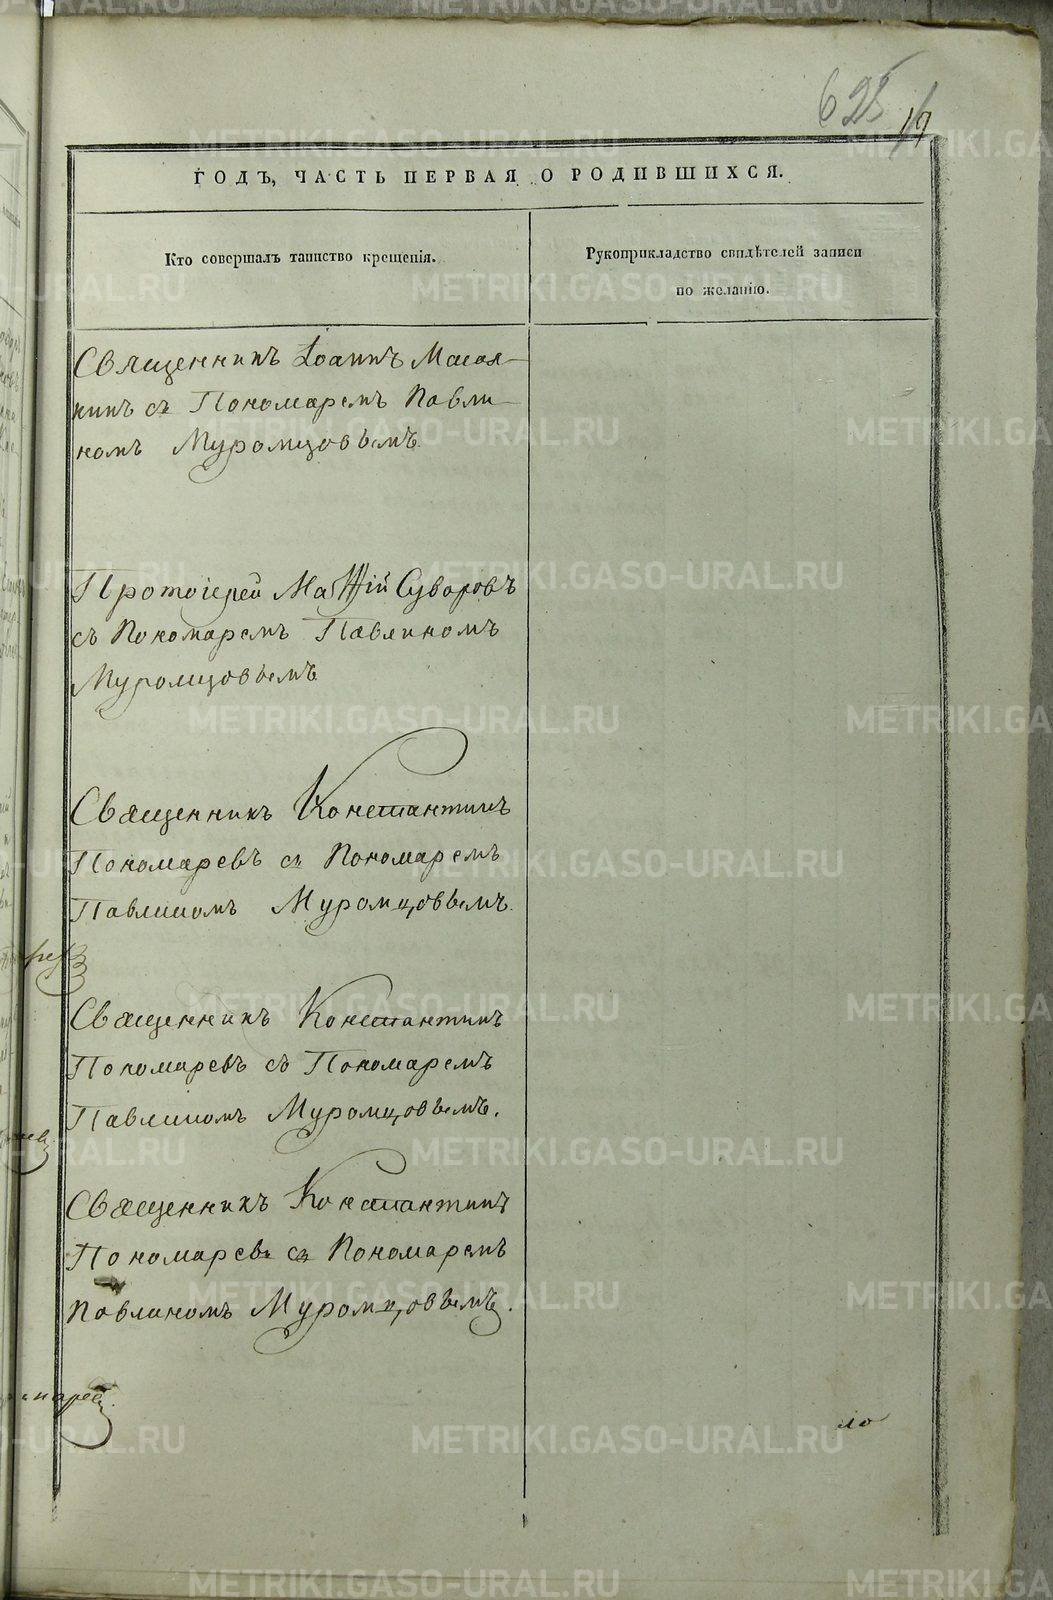 625
19
ГОДЪ, ЧАСТЬ ПЕРВАЯ О РОДИВШИХСЯ.
Кто совершалъ таинство крещенія.
Рукоприкладство свидѣтелей записи
по желанію.
Священникъ Іоаннъ
съ Пономаремъ Павли-
номъ Муромцовымъ
Протоіерей Матѳій Суворовъ
съ Пономаремъ Павлиномъ
Муромцовымъ
Священникъ Константинъ
Пономаревъ съ Пономаремъ
Павлиномъ Муромцовымъ.
Священникъ Константинъ
Пономаревъ съ Пономаремъ
Павлиномъ Муромцовымъ.
Священникъ Константинъ
Пономаревъ съ Пономаремъ
Павлиномъ Муромцовымъ.
METRIKI.GASO-URAL.RU